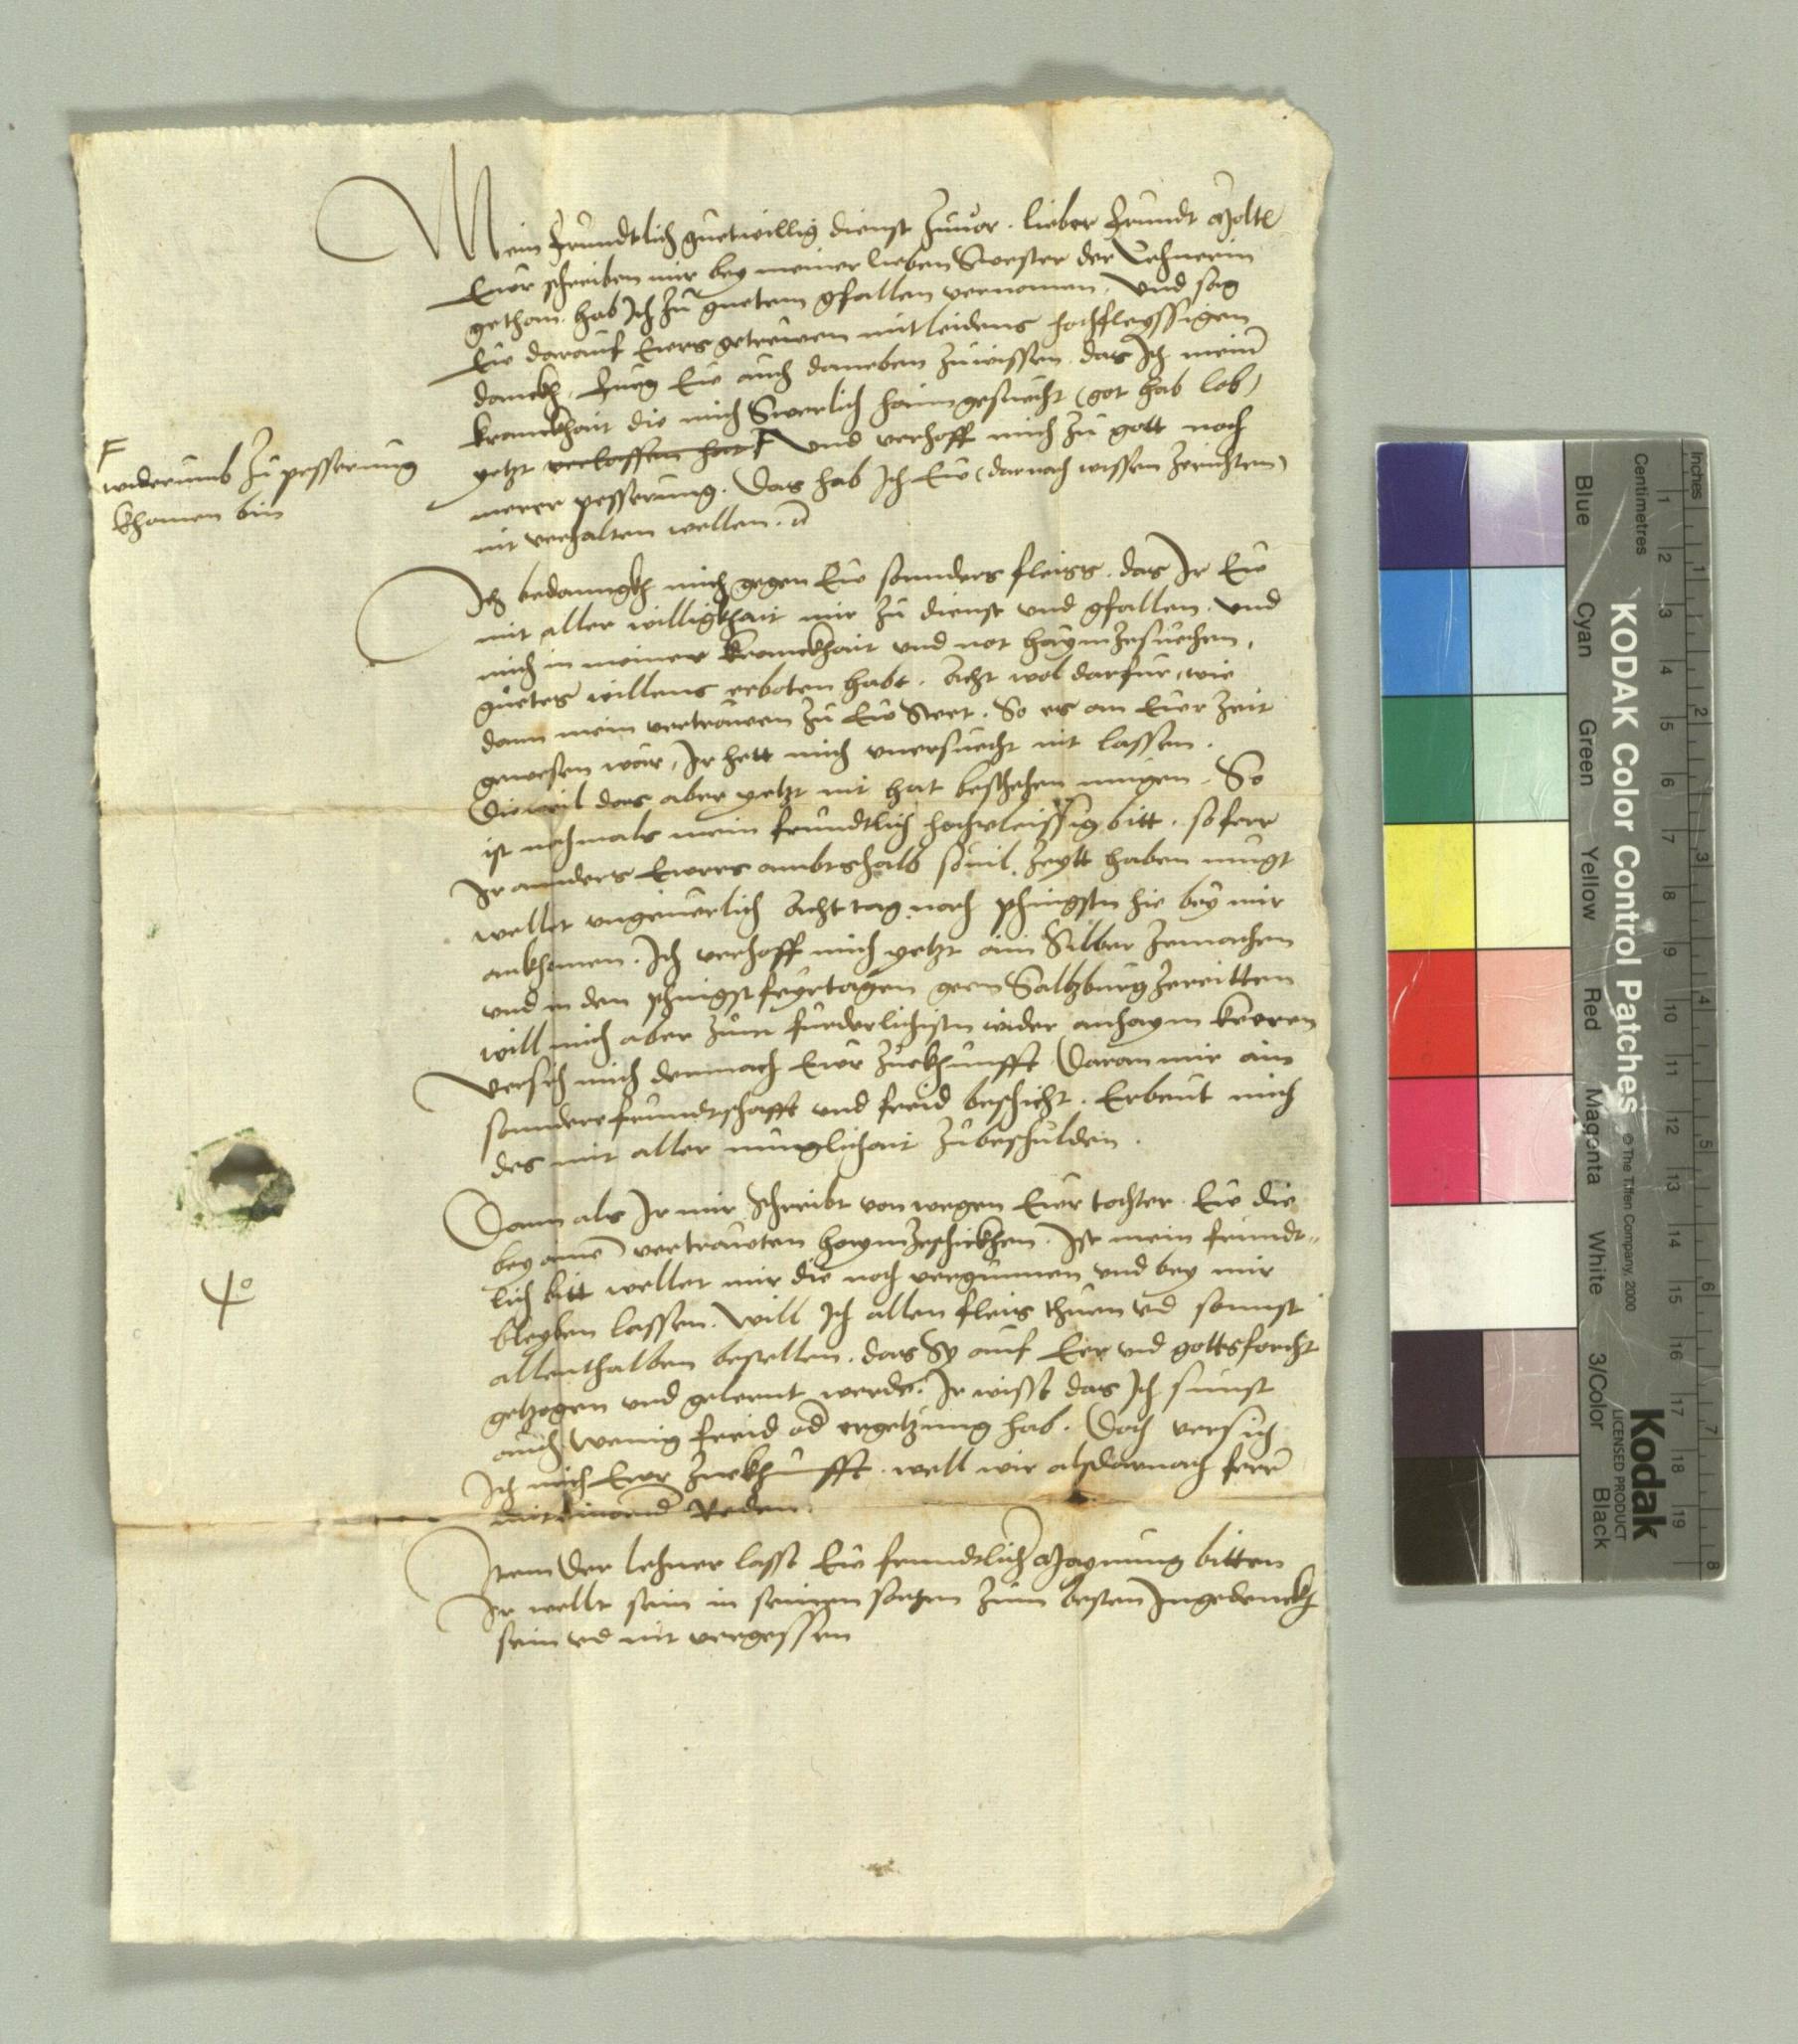 Mein freundtlich guetwillig dienst zuuor. lieber freundt
Ewr schreiben mir bey meiner lieben Swester der Lehnerin
gethan. hab Ich zu guetem gfallen vernomen. Und sag
Eu darauf Ewrs getrewen mitleidens hochfleyssigen
danckh. Fueg Eu auch daneben zuwissen das Ich mein
kranckhait die mich Swerlich haimgesuecht (got hab lob)
yetzt verlassen hat F und verhoff mich zu gott noch
merer pesserung. Das hab Ich Eu (darnach wissen zerichten)
nit verhalten wellen.
F
widerumb zu pesserung
khomen bin
Ich bedanngkh mich gegen Eu sonnders fleiss. das Ir Eu
mit aller willigkhait mir zu dienst und gfallen. und
mich in meiner kranckhait und not haymzesuechen.
guetes willens erboten habt. Acht wol darfur, wie
dann mein vertrauen zu Eu Steet. So es an Eur Zeit
gewesen wär, Ir hett mich unersuecht nit lassen.
Dieweil das aber yetzt nit hat beschehen mugen. So
ist nachmals mein freundtlich hochvleissig bitt. so ferr
Ir annders Ewres ambtshalb souil zeytt haben mugt
wellet ungeuerlich Acht tag nach phingsten hie bey mir
ankhomen. Ich verhoff mich yetzt ain Silber zemachen
und in den phingstfeyrtagen geen Saltzburg zereitten
will mich aber zum furderlichisten wider anhaym keeren
Versich mich demnach Ewr zuekhunfft. Daran mir ain
sonndere freundtschafft und freid beschicht. Erbeut mich
des mit aller muglichait zubeschulden.
Dann als Ir mir schreibt von wegen Eur tochter. Eu die
bey ainem vertrauten haymzeschickhen. Ist mein freundt-
lich bitt wellet mir die noch vergunnen und bey mir
bleyben lassen. Will Ich allen fleis thuen und sonnst
allenthalben bestellen. das Sy auf Eer und gottsforcht
getzogen und gelernt werde. Ir wisst das Ich sunst
auch wenig freid oder ergetzung hab. Doch versich
Ich mich Ewr zuekhunfft. well wir alsdarnach ferrer
mit einander Reden.
Item der Lehner lasst Eu freundtlicher Maynung bitten
Ir wellt sein in seinen sachen zum besten Ingedenckh
sein und nit vergessen